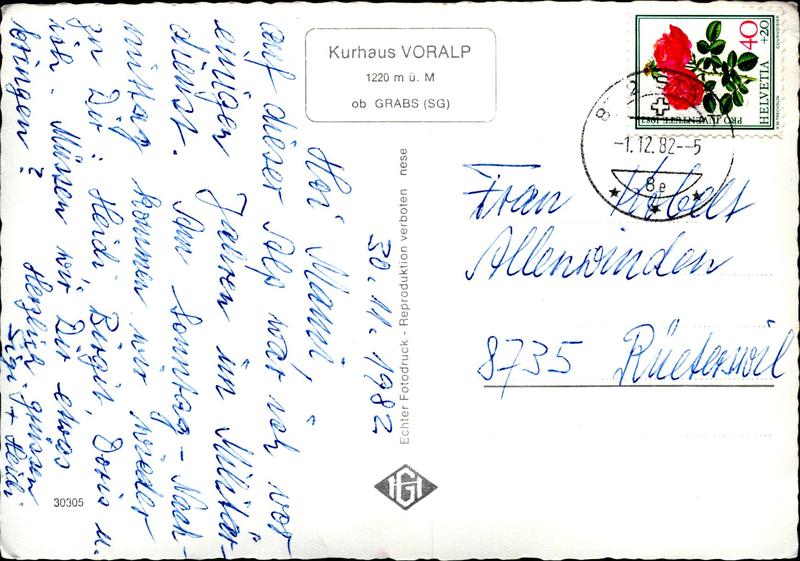 Kurhaus VORALP
1220 m ü. M
ob GRABS (SG)
30.11.1982
Hoi Mami,
auf dieser Alp war ich vor
einigen Jahren im Militär-
dienst. Am Sonntag-Nach-
mittag kommen wir wieder
zu Dir: Heidi, Birgit, Doris u.
ich. Müssen wir Dir etwas
bringen?
Herzlich grüssen
Sigi + Heidi
30305
Echter Fotodruck - Reproduktion verboten nese
HELVETIA
40
+20
PRO JUVENTUTE 1982
-1.12.82--5
8e
Frau
Allenwinden
8735 Rüeterswil